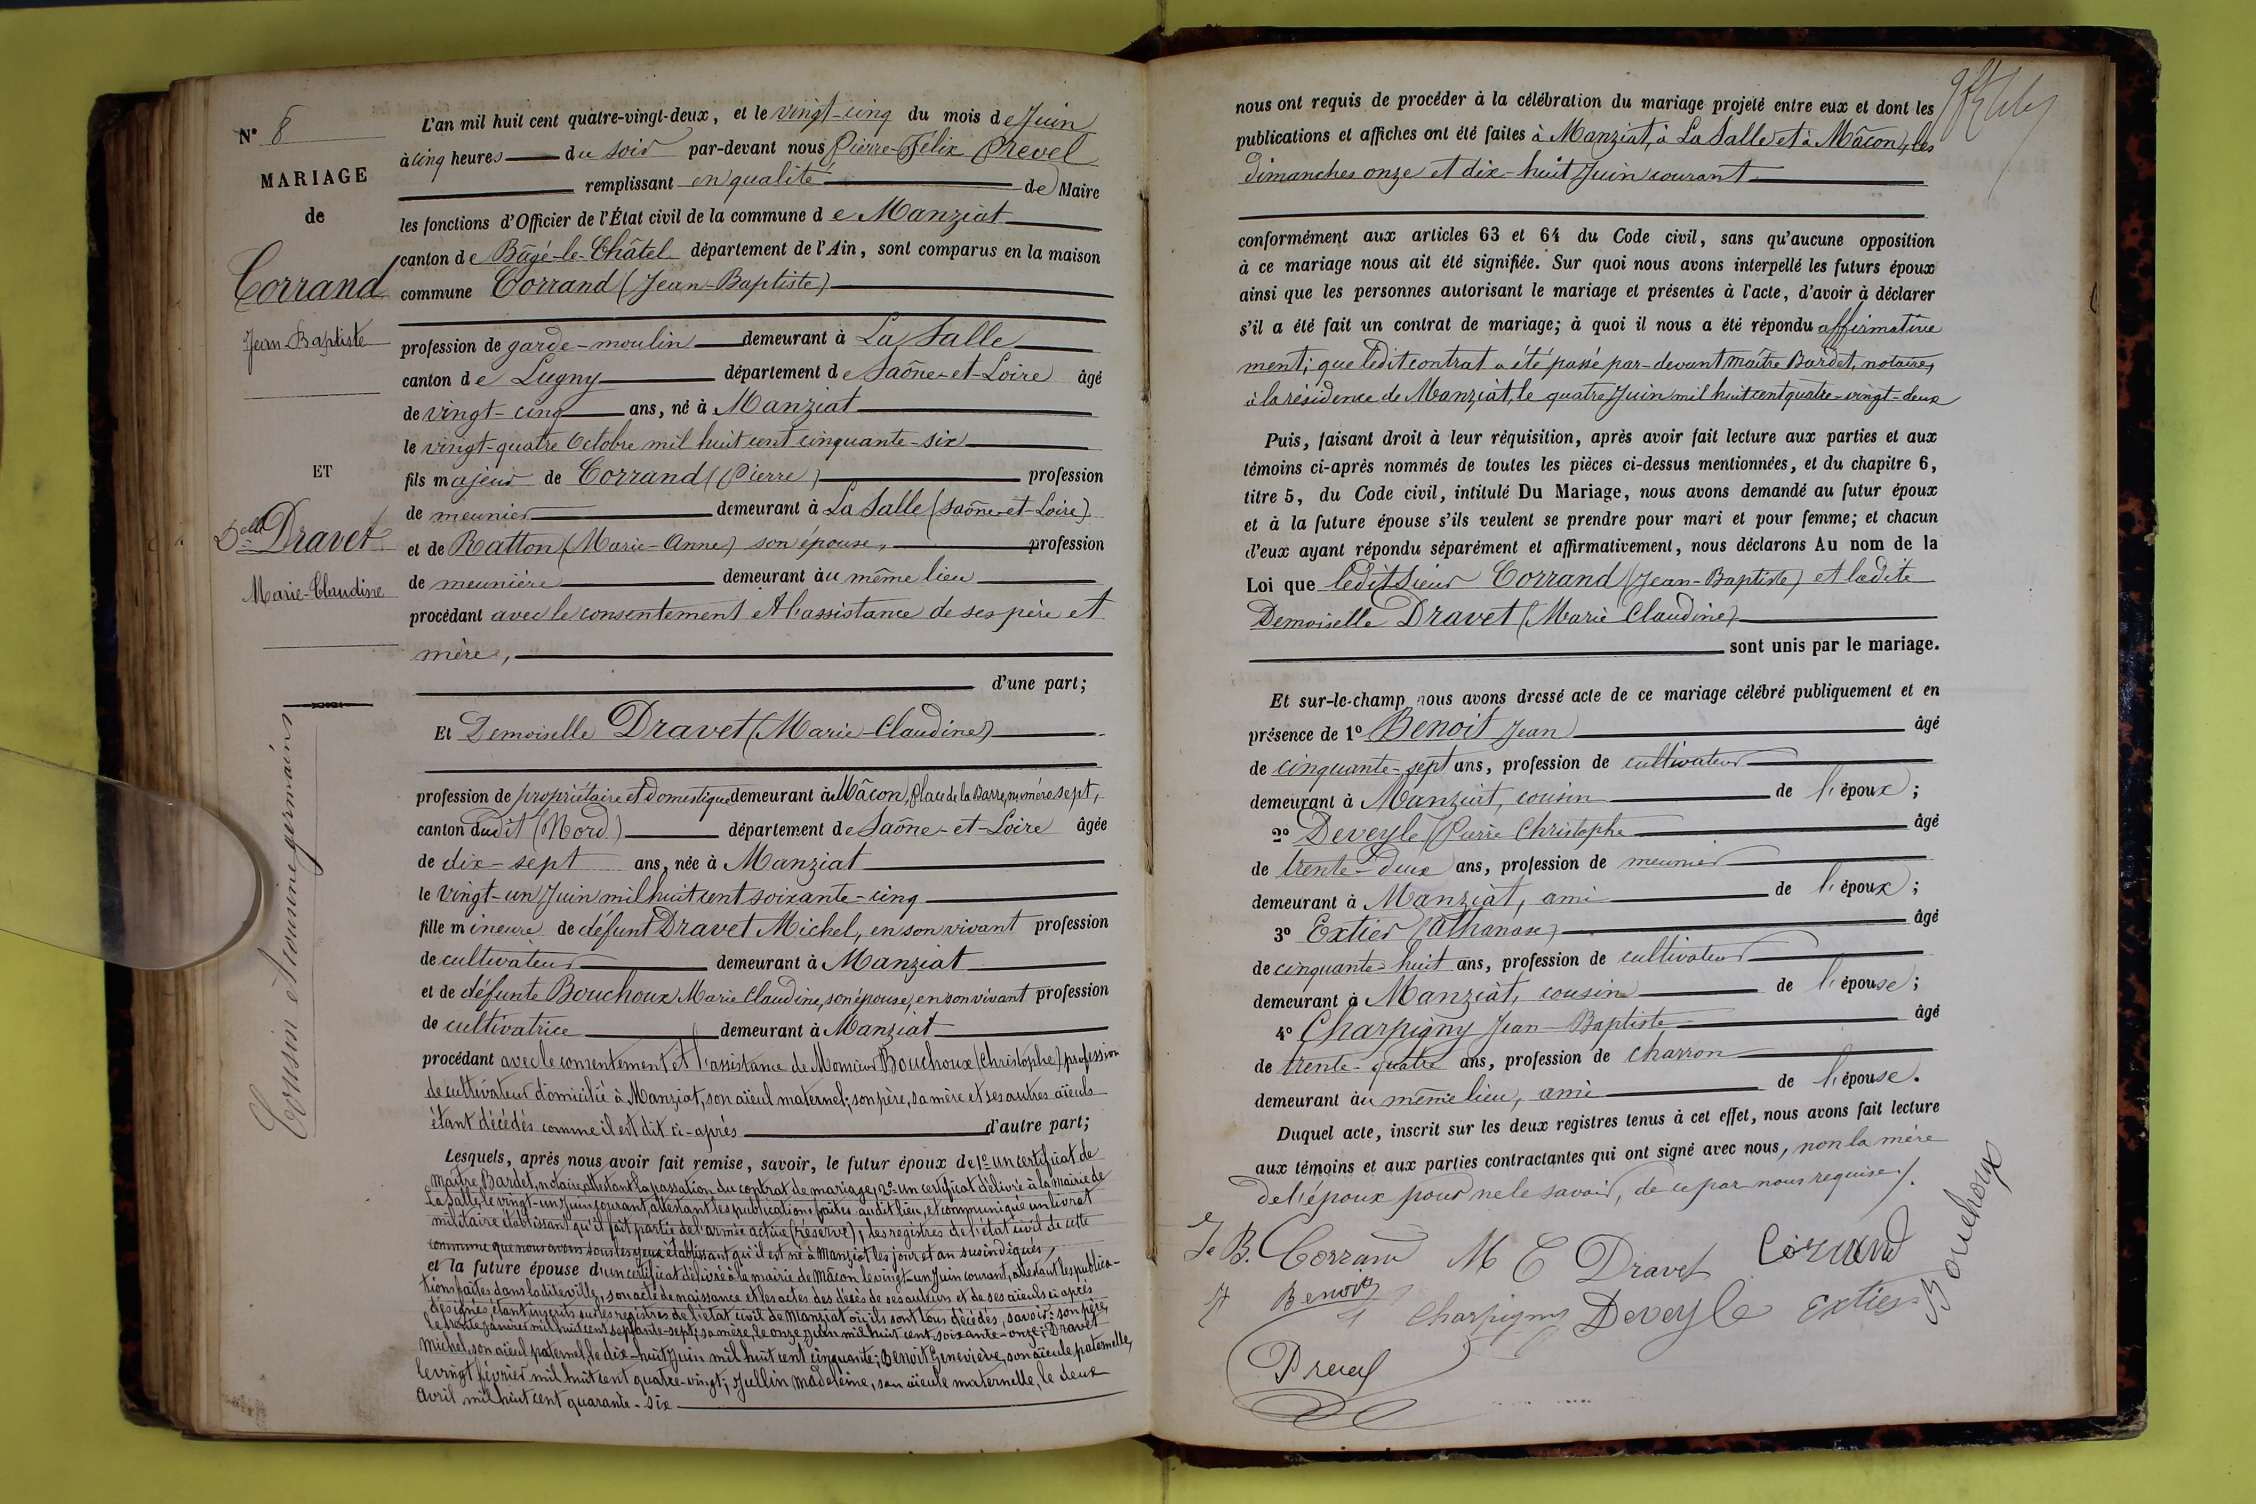 N° 8
MARIAGE
de
Corrand
Jean-Baptiste
ET
Delle Dravet
Marie-Claudine
Cousin et cousine germains
L'an mil huit cent quatre-vingt-deux, et le vingt-cinq du mois de Juin
à cinq heures du soir par-devant nous Pierre-Félix Prevel
remplissant en qualité de Maire
les fonctions d'Officier de l'État civil de la commune de Manziat
canton de Bâgé-le-Châtel département de l'Ain, sont comparus en la maison
commune Corrand (Jean-Baptiste)
profession de garde-moulin demeurant à La Salle
canton de Lugny département de Saône-et-Loire âgé
de vingt-cinq ans, né à Manziat
le vingt-quatre Octobre mil huit cent cinquante-six
fils majeur de Corrand (Pierre) profession
de meunier demeurant à La Salle (Saône-et-Loire)
et de Ratton (Marie-Anne) son épouse, profession
de meunière demeurant au même lieu
procédant avec le consentement et l'assistance de ses père et
mère,
d'une part;
Et Demoiselle Dravet (Marie-Claudine)
profession de propriétaire et domestique demeurant à Mâcon, place de la Barre, numéro sept,
canton dudit (Nord) département de Saône-et-Loire âgée
de dix-sept ans, née à Manziat
le vingt-un Juin mil huit cent soixante-cinq
fille mineure de défunt Dravet Michel, en son vivant profession
de cultivateur demeurant à Manziat
et de défunte Bouchoux Marie Claudine, son épouse, en son vivant profession
de cultivatrice demeurant à Manziat
procédant avec le consentement et l'assistance de Monsieur Bouchoux (Christophe) profession
de cultivateur domicilié à Manziat, son aïeul maternel; son père, sa mère et ses autres aïeuls
étant décédés comme il est dit ci-après d'autre part;
Lesquels, après nous avoir fait remise, savoir, le futur époux de 1° un certificat de
Maître Bardet, notaire, attestant la passation du contrat de mariage, 2° un certificat délivré à la mairie de
La Salle, le vingt-un Juin courant, attestant les publications faites audit lieu, et communiqué un livret
militaire établissant qu'il fait partie de l'armée active (réserve); les registres de l'état civil de cette
commune que nous avons sous les yeux établissant qu'il est né à Manziat les jour et an susindiqués,
et la future épouse d'un certificat délivré à la mairie de Mâcon le vingt-un Juin courant, attestant les publica-
tions faites dans ladite ville, son acte de naissance et les actes des décès de ses auteurs et de ses aïeuls ci après
désignés, étant inscrits sur les registres de l'état civil de Manziat où ils sont tous décédés, savoir: son père,
le trente Janvier mil huit cent septante-sept; sa mère, le onze Juin mil huit cent soixante-onze; Dravet
Michel, son aïeul paternel, le dix-huit Juin mil huit cent cinquante; Benoit Geneviève, son aïeule paternelle,
le vingt février mil huit cent quatre-vingt; Jullin Madeleine, son aïeule maternelle, le deux
Avril mil huit cent quarante-six
nous ont requis de procéder à la célébration du mariage projeté entre eux et dont les
publications et affiches ont été faites à Manziat, à La Salle et à Mâcon, les
dimanches onze et dix-huit Juin courant
conformément aux articles 63 et 64 du Code civil, sans qu'aucune opposition
à ce mariage nous ait été signifiée. Sur quoi nous avons interpellé les futurs époux
ainsi que les personnes autorisant le mariage et présentes à l'acte, d'avoir à déclarer
s'il a été fait un contrat de mariage; à quoi il nous a été répondu affirmative
ment; que ledit contrat a été passé par-devant maître Bardet, notaire,
à la résidence de Manziat, le quatre Juin mil huit cent quatre-vingt-deux
Puis, faisant droit à leur réquisition, après avoir fait lecture aux parties et aux
témoins ci-après nommés de toutes les pièces ci-dessus mentionnées, et du chapitre 6,
titre 5, du Code civil, intitulé Du Mariage, nous avons demandé au futur époux
et à la future épouse s'ils veulent se prendre pour mari et pour femme; et chacun
d'eux ayant répondu séparément et affirmativement, nous déclarons Au nom de la
Loi que ledit Sieur Corrand (Jean-Baptiste) et ladite
Demoiselle Dravet (Marie Claudine)
sont unis par le mariage.
Et sur-le-champ nous avons dressé acte de ce mariage célébré publiquement et en
présence de 1° Benoit Jean âgé
de cinquante-sept ans, profession de cultivateur
demeurant à Manziat, cousin de l'époux;
2° Deveyle (Pierre Christophe âgé
de trente-deux ans, profession de meunier
demeurant à Manziat, ami de l'époux;
3° Extier (Athanase) âgé
de cinquante-huit ans, profession de cultivateur
demeurant à Manziat, cousin de l'épouse;
4° Charpigny Jean-Baptiste âgé
de trente-quatre ans, profession de charron
demeurant au même lieu, ami de l'épouse.
Duquel acte, inscrit sur les deux registres tenus à cet effet, nous avons fait lecture
aux témoins et aux parties contractantes qui ont signé avec nous, non la mère
de l'époux pour ne le savoir, de ce par nous requise./.
J. B. Corrand M C Dravet Corrand
Bouchoux
Benoit Charpigny Deveyle Extier
Prevel